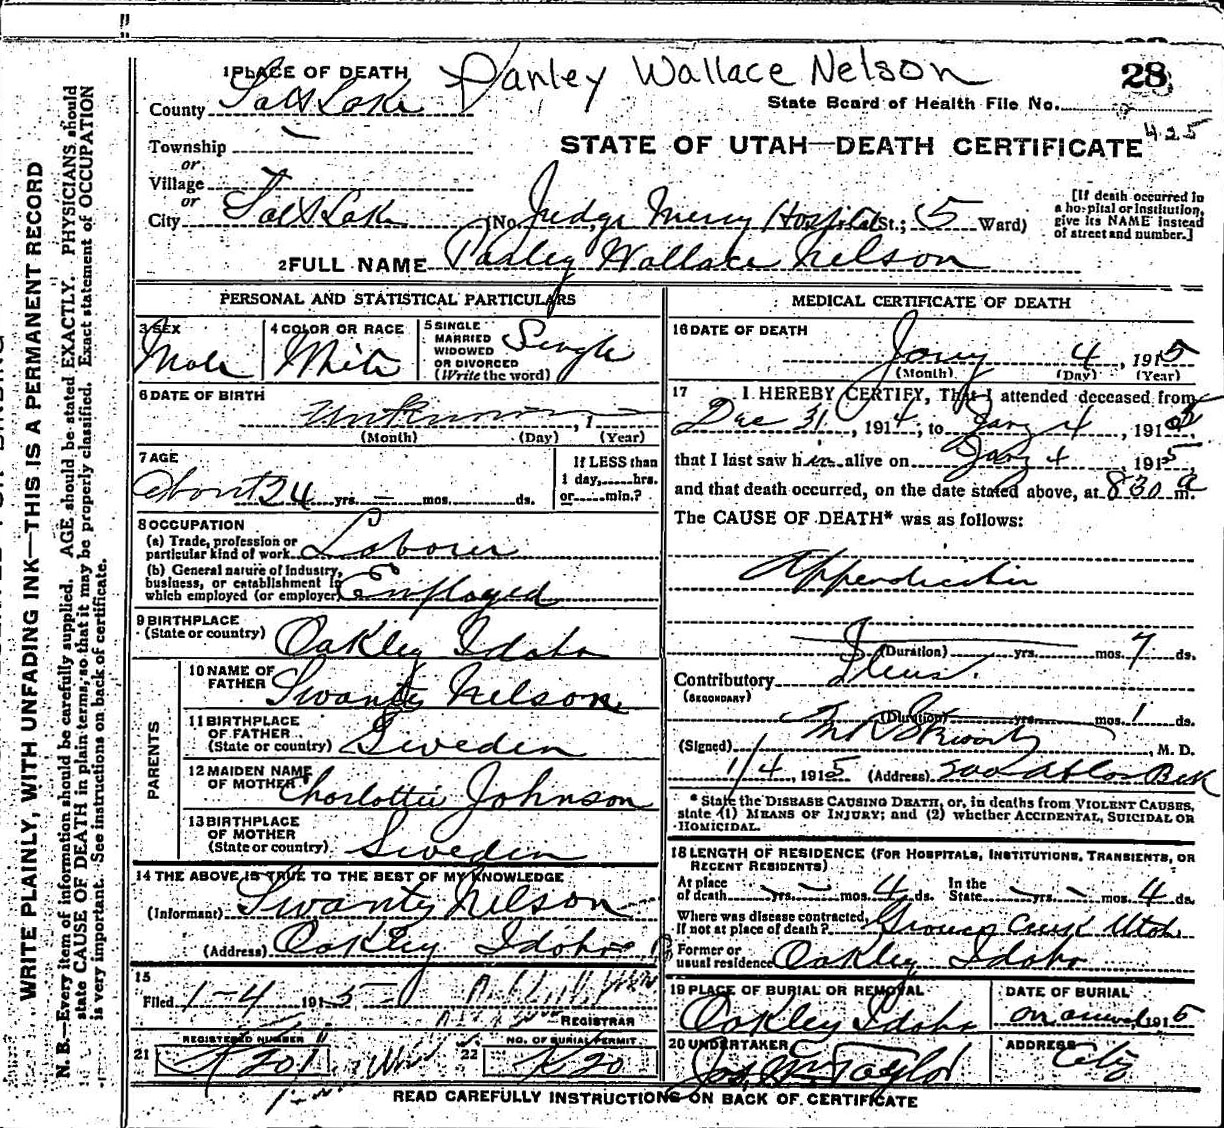 28
Parley Wallace Nelson
1 PLACE OF DEATH
County Salt Lake
State Board of Health File No.
425
Township
or
Village
or
STATE OF UTAH—DEATH CERTIFICATE
City Salt Lake (No. Judge Mercy Hospital St.; 5 Ward)
[If death occurred in
a hospital or institution,
give its NAME instead
of street and number.]
2 FULL NAME Parley Wallace Nelson
PERSONAL AND STATISTICAL PARTICULARS
3 SEX
Male
4 COLOR OR RACE
White
5 SINGLE
MARRIED
WIDOWED
OR DIVORCED
(Write the word)
Single
6 DATE OF BIRTH
Unknown, 1
(Month) (Day) (Year)
7 AGE
about 24 yrs. — mos. ds.
If LESS than
1 day, hrs.
or min.?
8 OCCUPATION
(a) Trade, profession or
particular kind of work Labour
(b) General nature of industry,
business, or establishment in
which employed (or employer) Employed
9 BIRTHPLACE
(State or country) Oakley Idaho
PARENTS
10 NAME OF
FATHER Swanty Nelson
11 BIRTHPLACE
OF FATHER
(State or country) Sweden
12 MAIDEN NAME
OF MOTHER Charlottie Johnson
13 BIRTHPLACE
OF MOTHER
(State or country) Sweden
14 THE ABOVE IS TRUE TO THE BEST OF MY KNOWLEDGE
(Informant) Swanty Nelson
(Address) Oakley Idaho
15
Filed 1-4 1915
REGISTRAR
REGISTERED NUMBER
21
NO. OF BURIAL PERMIT
22 K20
MEDICAL CERTIFICATE OF DEATH
16 DATE OF DEATH
Jany 4, 1915
(Month) (Day) (Year)
17 I HEREBY CERTIFY, That I attended deceased from
Dec 31, 1914, to Jany 4, 1915
that I last saw him alive on Jany 4, 1915,
and that death occurred, on the date stated above, at 830 a m.
The CAUSE OF DEATH* was as follows:
Appendicitis
(Duration) yrs. mos. 7 ds.
Contributory Ileus.
(SECONDARY)
(Duration) yrs. mos. 1 ds.
(Signed) , M. D.
1/4, 1915 (Address)
* State the DISEASE CAUSING DEATH, or, in deaths from VIOLENT CAUSES,
state (1) MEANS OF INJURY; and (2) whether ACCIDENTAL, SUICIDAL OR
HOMICIDAL.
18 LENGTH OF RESIDENCE (FOR HOSPITALS, INSTITUTIONS, TRANSIENTS, OR
RECENT RESIDENTS)
At place
of death — yrs. — mos. 4 ds.
In the
State — yrs. — mos. 4 ds.
Where was disease contracted,
If not at place of death? Grouse Creek Utah
Former or
usual residence Oakley Idaho
19 PLACE OF BURIAL OR REMOVAL
Oakley Idaho
DATE OF BURIAL
on arrival, 1915
20 UNDERTAKER
Jos. Wm Taylor
ADDRESS
City
READ CAREFULLY INSTRUCTIONS ON BACK OF CERTIFICATE
WRITE PLAINLY, WITH UNFADING INK—THIS IS A PERMANENT RECORD
N. B.—Every item of information should be carefully supplied. AGE should be stated EXACTLY. PHYSICIANS should
state CAUSE OF DEATH in plain terms, so that it may be properly classified. Exact statement of OCCUPATION
is very important. See instructions on back of certificate.